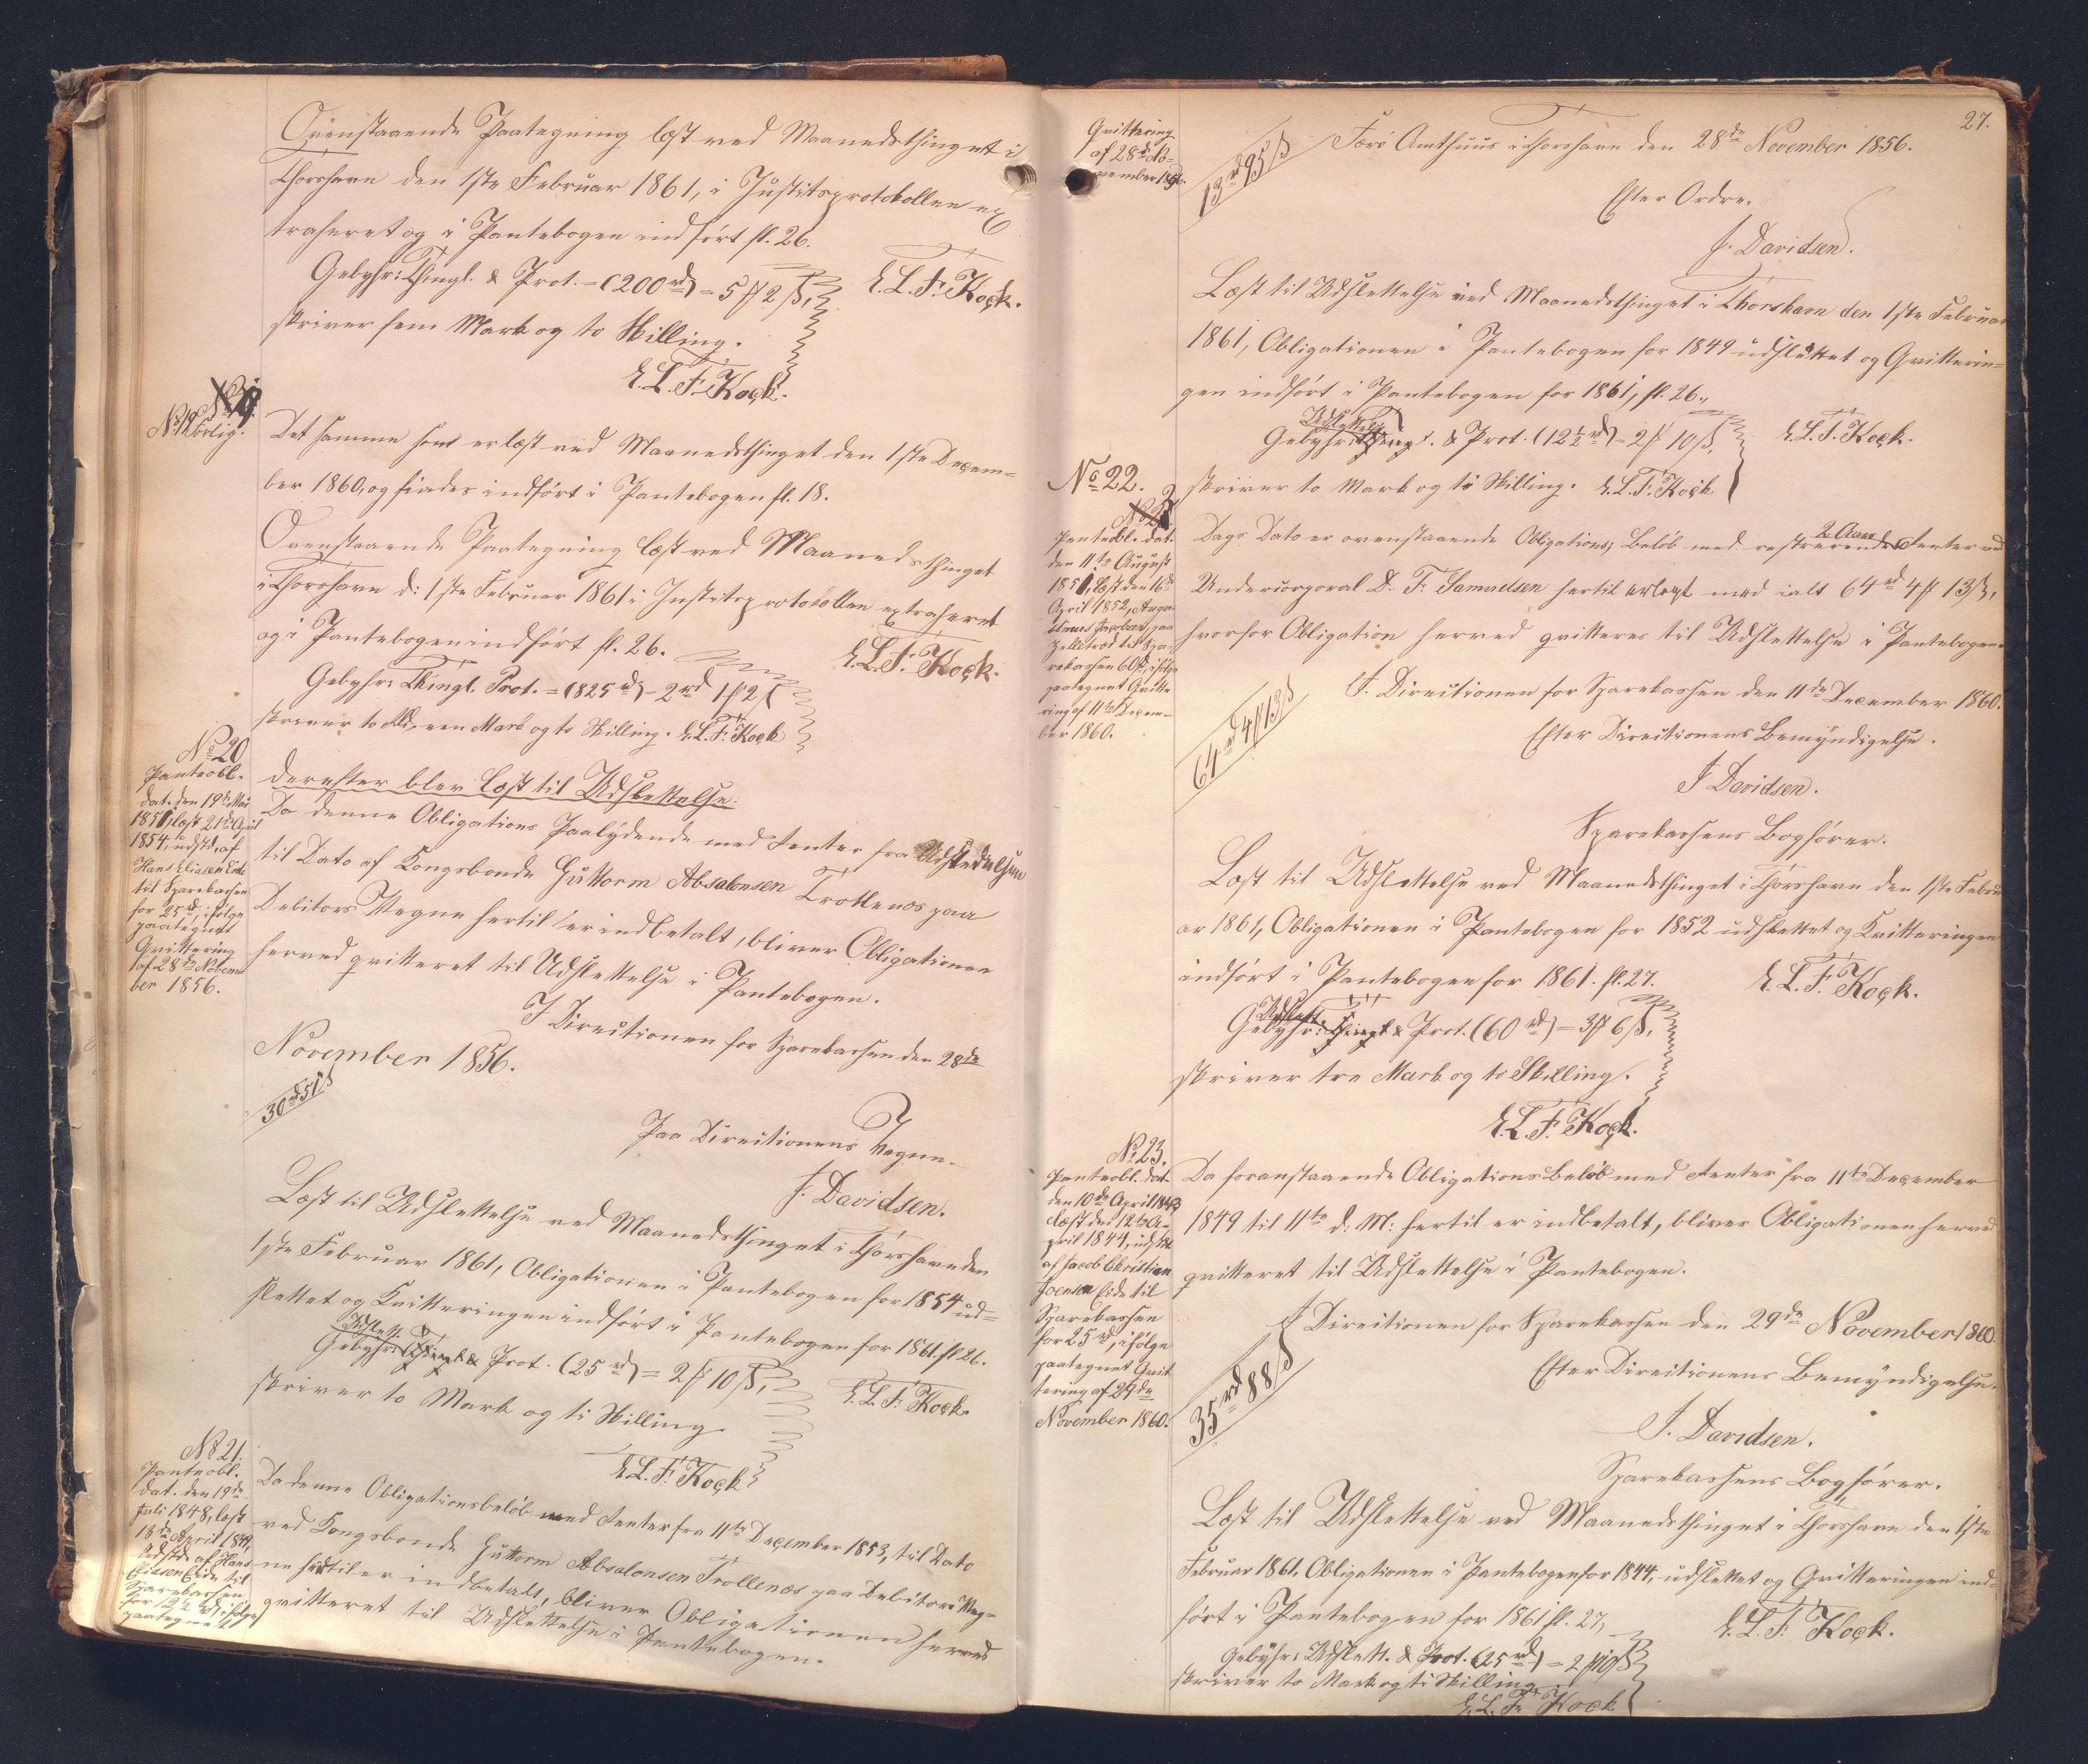 Ovenstaaende Paategning læst ved Maanedsthinget i
Thorshavn den 1ste Februar 1861, i Justitsprotokollen ex
traheret og i Pantebogen indført fl. 26.
E. L. F. Kock.
Gebyhr: Thingl. & Prot. = (200 rd) = 5 # 2 ß,
skriver fem Mark og to Skilling.
E. L. F. Kock.
No 19
Det samme som er læst ved Maanedsthinget den 1ste Decem=
ber 1860, og findes indført i Pantebogen fl. 18.
Ovenstaaende Paategning læst ved Maanedsthinget
i Thorshavn d: 1ste Februar 1861 i Justitsprotokollen extraheret
og i Pantebogen indført fl. 26.
E. L. F. Kock.
Gebyhr: Thingl. Prot. = (825 rd) = 2 rd 1 # 2 ß
skriver to Rd, een Mark og to Skilling. E. L. F. Kock
derefter blev læst til Udslettelse:
No 20
Panteobl.
dat. den 19de Mai
1851, læst 21de April
1854, udstd. af
Hans Eliasen Eide
til Sparekassen
for 25 rd, ifølge
paategnet
Qvittering
af 28de Novem
ber 1856.
Da denne Obligations Paalydende med Renter fra Udstedelsen
til Dato af Kongsbonde Guttorm Absalonsen Trollenæs paa
Debitors Vegne hertil er indbetalt, bliver Obligationen
herved qvitteret til Udslettelse i Pantebogen.
I Directionen for Sparekassen den 28de
November 1856.
30 rd 51 ß
Paa Directionens Vegne.
J. Davidsen.
Læst til Udslettelse ved Maanedsthinget i Thorshavn den
1ste Februar 1861, Obligationen i Pantebogen for 1854 ud=
slettet og Kvitteringen indført i Pantebogen for 1861 fl 26.
E. L. F. Kock.
Udslett.
Gebyhr: Thingl. & Prot. (25 rd) = 2 # 10 ß,
skriver to Mark og ti Skilling
E. L. F. Kock
No 21.
Panteobl.
dat. den 19de
Juli 1848, læst
18de April 1849,
udstd. af Hans
Eliasen Eide til
Sparekassen
for 12½ rd, ifølge
paategnet
Da denne Obligationsbeløb med Renter fra 11te December 1853, til Dato
ved Kongsbonde Guttorm Absalonsen Trollenæs paa Debitors Veg=
ne hertil er indbetalt, bliver Obligationen herved
qvitteret til Udslettelse i Pantebogen.
27.
Qvittering
af 28de No-
vember 1856.
13 rd 95 ß
Færø Amthuus i Thorshavn den 28de November 1856.
Efter Ordre.
J. Davidsen.
Læst til Udslettelse ved Maanedsthinget i Thorshavn den 1ste Februar
1861, Obligationen i Pantebogen for 1849 udslettet og Qvitterin=
gen indført i Pantebogen for 1861, fl. 26.,
E. L. F. Kock.
Udslettelse
Gebyhr: Thingl. & Prot. (12½ rd) = 2 # 10 ß,
skriver to Mark og ti Skilling. E. L. F. Kock
No 22.
Panteobl. dat.
den 11te August
1851, læst den 16de
April 1852,
Jacobsen, paa
Selletrød til Spa-
rekassen 60 rd, ifølge
paategnet Qvitte
ring af 11te Decem-
ber 1860.
2 Aars
Dags Dato er ovenstaaende Obligations Beløb med resterende Renter ved
Undercorporal D. F. Samuelsen hertil erlagt med ialt 64 rd 4 # 13 ß,
hvorfor Obligation herved qvitteres til Udslettelse i Pantebogen.
64 rd 4 # 13 ß
I. Directionen for Sparekassen den 11te December 1860.
Efter Directionens Bemyndigelse.
J Davidsen.
Sparekassens Bogfører.
Læst til Udslettelse ved Maanedsthinget i Thorshavn den 1ste Febru
ar 1861, Obligationen i Pantebogen for 1852 udslettet og Kvitteringen
indført i Pantebogen for 1861. fl. 27.
E. L. F. Kock.
Udslett.
Gebyhr: Thingl & Prot. (60 rd) = 3 # 6 ß,
skriver tre Mark og Skilling.
E. L. F. Kock.
No 23.
Panteobl. dat.
den 10de April 1843
læst den 12te A-
pril 1844, udstdt
af Jacob Christian
Joensen Eide til
Sparekassen
for 25 rd, ifølge
paategnet Qvit
tering af 29de
November 1860.
Da foranstaaende Obligationsbeløb med Renter fra 11te December
1849 til 11te d: M: hertil er indbetalt, bliver Obligationen herved
qvitteret til Udslettelse i Pantebogen.
35 rd 88 ß
I Directionen for Sparekassen den 29de November 1860
Efter Directionens Bemyndigelse.
J. Davidsen.
Sparekassens Bogfører.
Læst til Udslettelse ved Maanedsthinget i Thorshavn den 1ste
Februar 1861, Obligationen i Pantebogen for 1844, udslettet og Qvitteringen ind=
ført i Pantebogen for 1861 fl. 27,
E. L. F. Kock.
Gebyhr: Udslett. & Prot. (25 rd) = 2 # 10 ß
skriver to Mark og ti Skilling
E. L. F. Kock